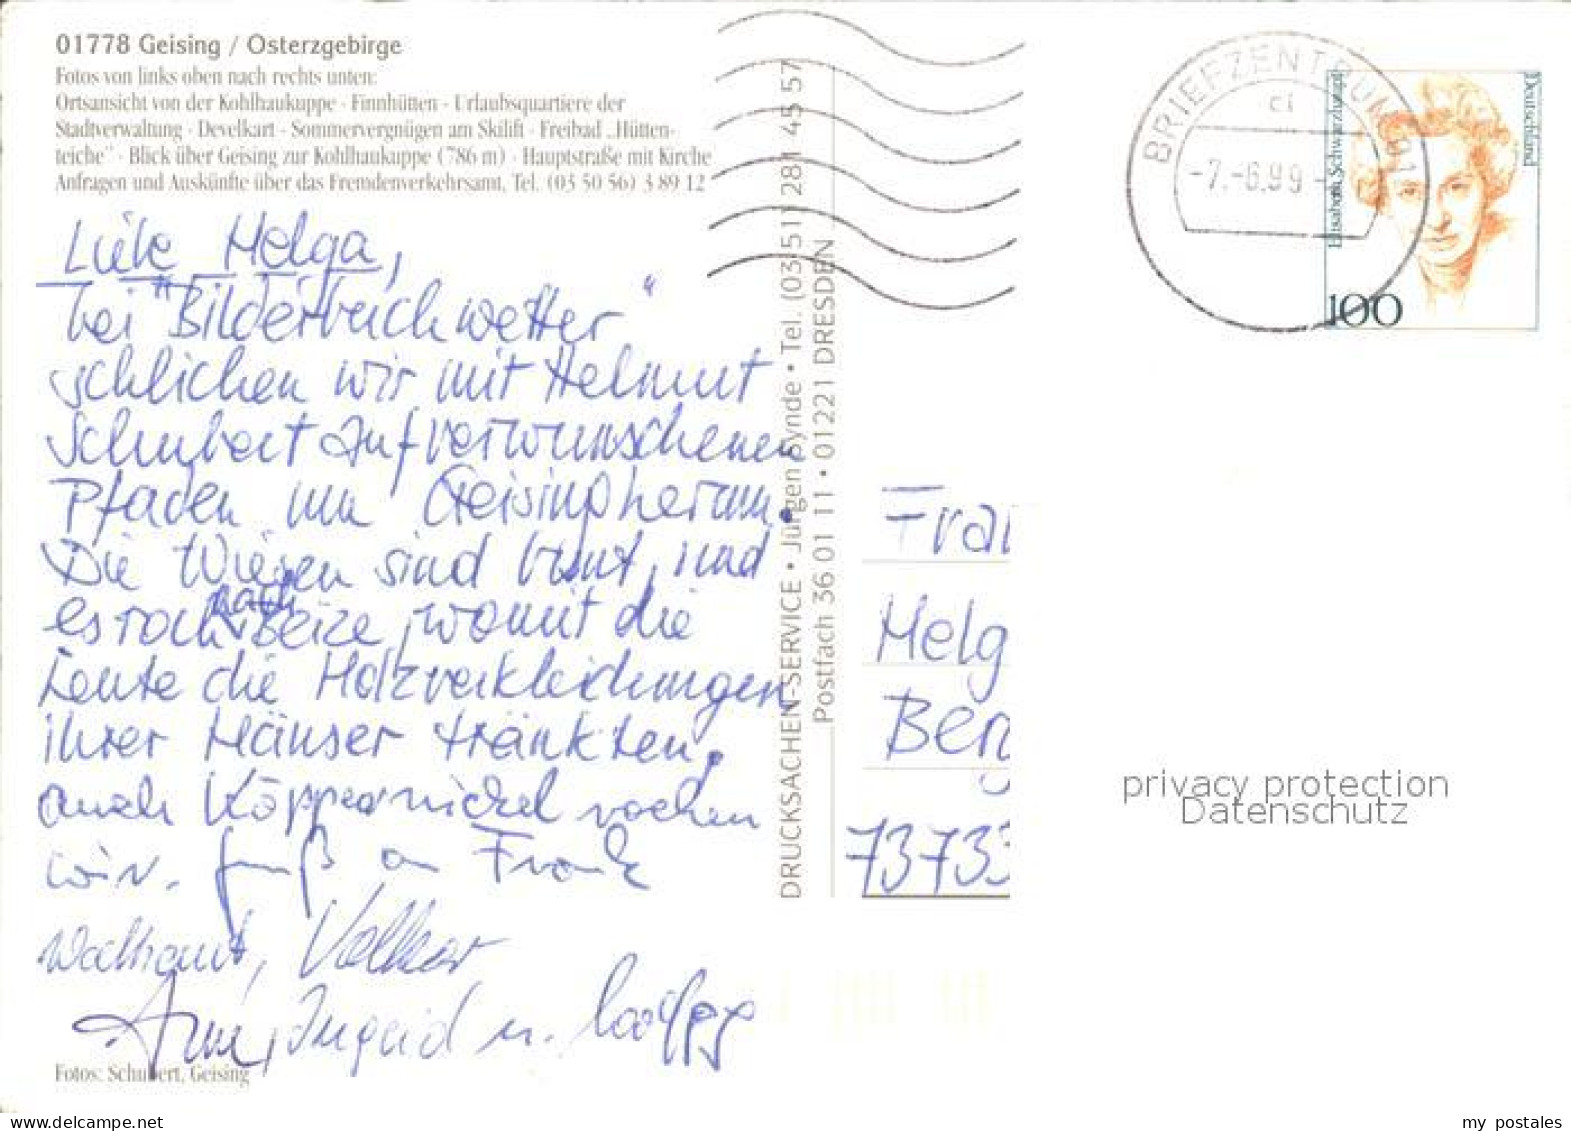 01778 Geising / Osterzgebirge
Fotos von links oben nach rechts unten:
Ortsansicht von der Kohlhaukuppe · Finnhütten · Urlaubsquartiere der
Stadtverwaltung · Develkart · Sommervergnügen am Skilift · Freibad „Hütten-
teiche" · Blick über Geising zur Kohlhaukuppe (786 m) · Hauptstraße mit Kirche
Anfragen und Auskünfte über das Fremdenverkehrsamt, Tel. (03 50 56) 3 89 12
Liebe Helga,
bei "Bilderbuchwetter"
schlichen wir mit Helmut
Schubert auf verwunschenen
Pfaden um Geising herum.
Die Wiesen sind bunt, und
es roch nach Beize, womit die
Leute die Holzverkleidungen
ihrer Häuser tränkten.
auch Köppernickel rochen
wir. Gruß an Frank
Waltraut, Volkar
Ingrid u.
Fotos: Schubert, Geising
DRUCKSACHEN-SERVICE · Jürgen Synde · Tel. (0351) 281 45 57
Postfach 36 01 11 · 01221 DRESDEN
BRIEFZENTRUM 01
-7.-6.99-
Elisabeth Schwarzhaupt
Deutschland
100
Frau
Helg
Berg
73733
privacy protection
Datenschutz
my postales